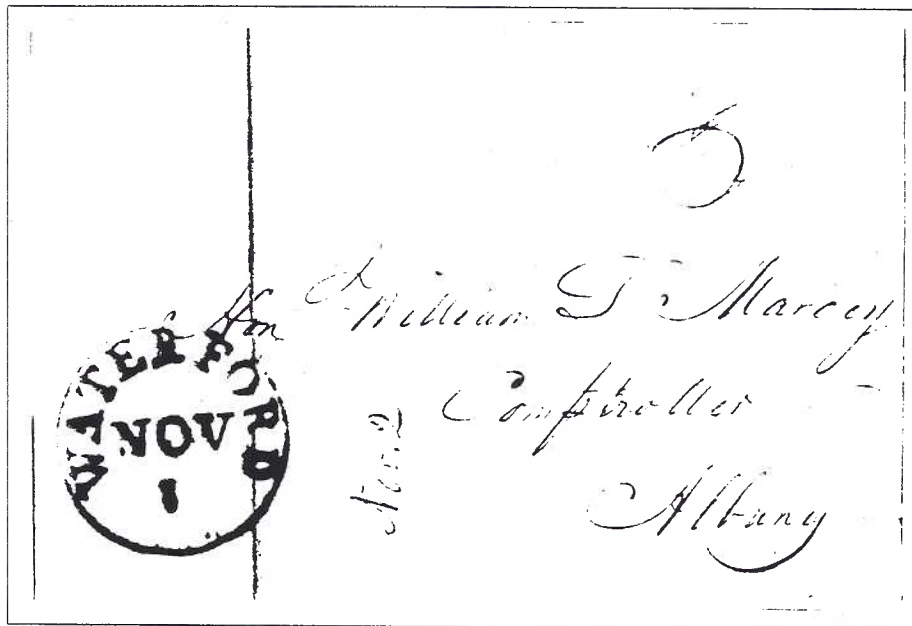 Hon William T Marcey
Comptroller
Albany
WATERFORD
NOV
1